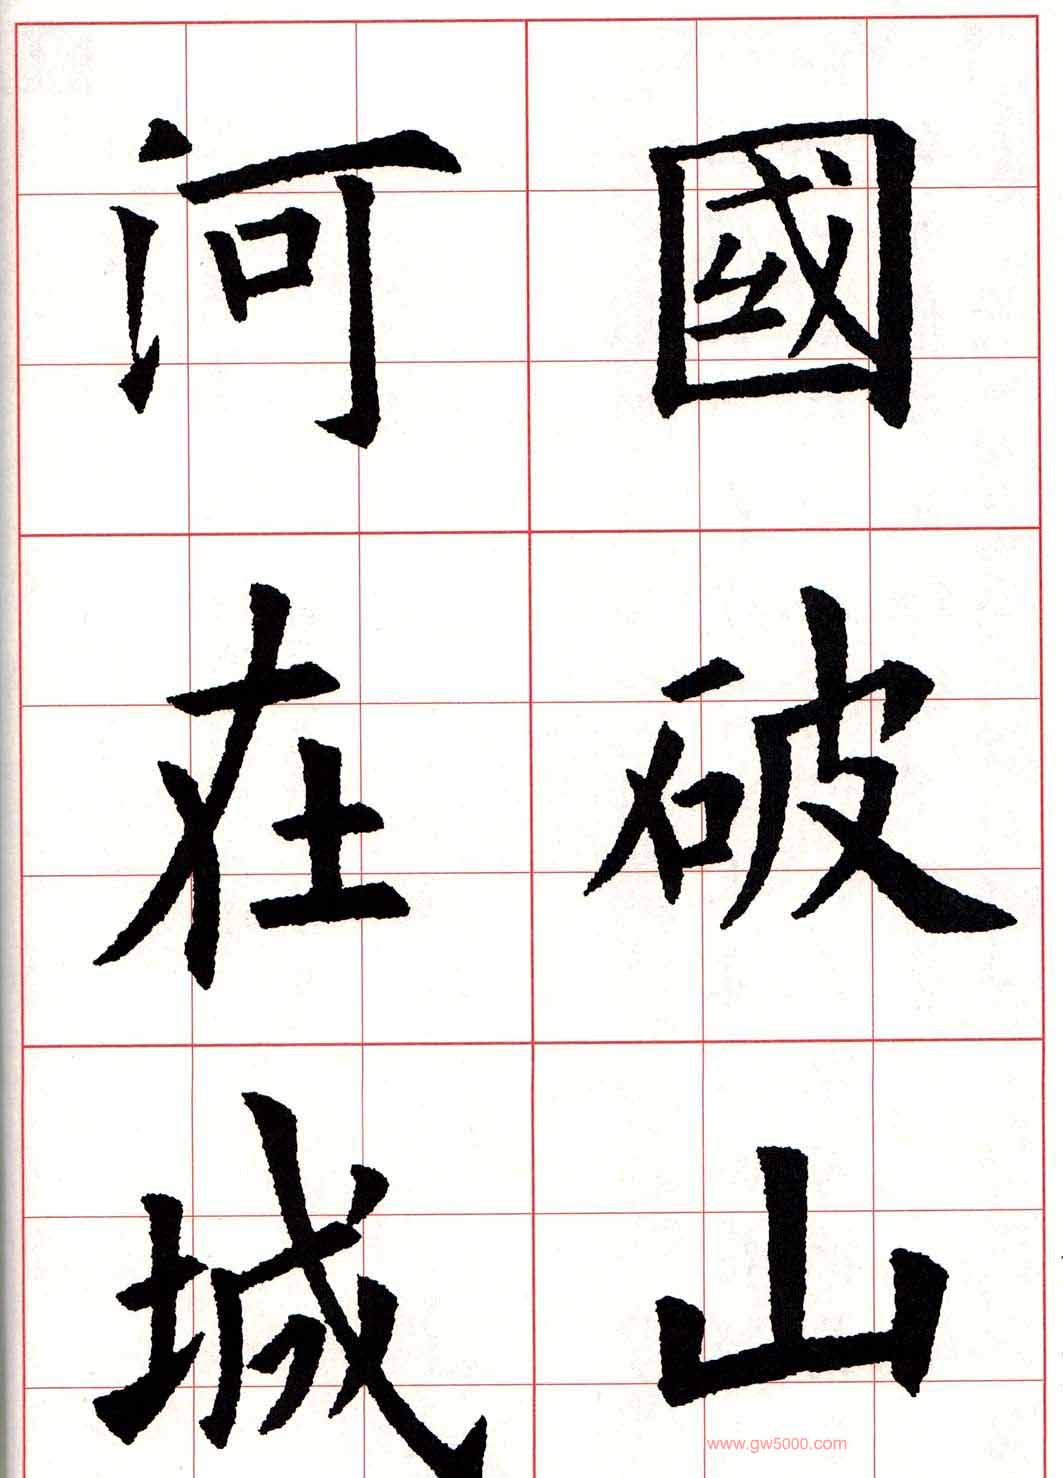 國破山
河在城
www.gw5000.com